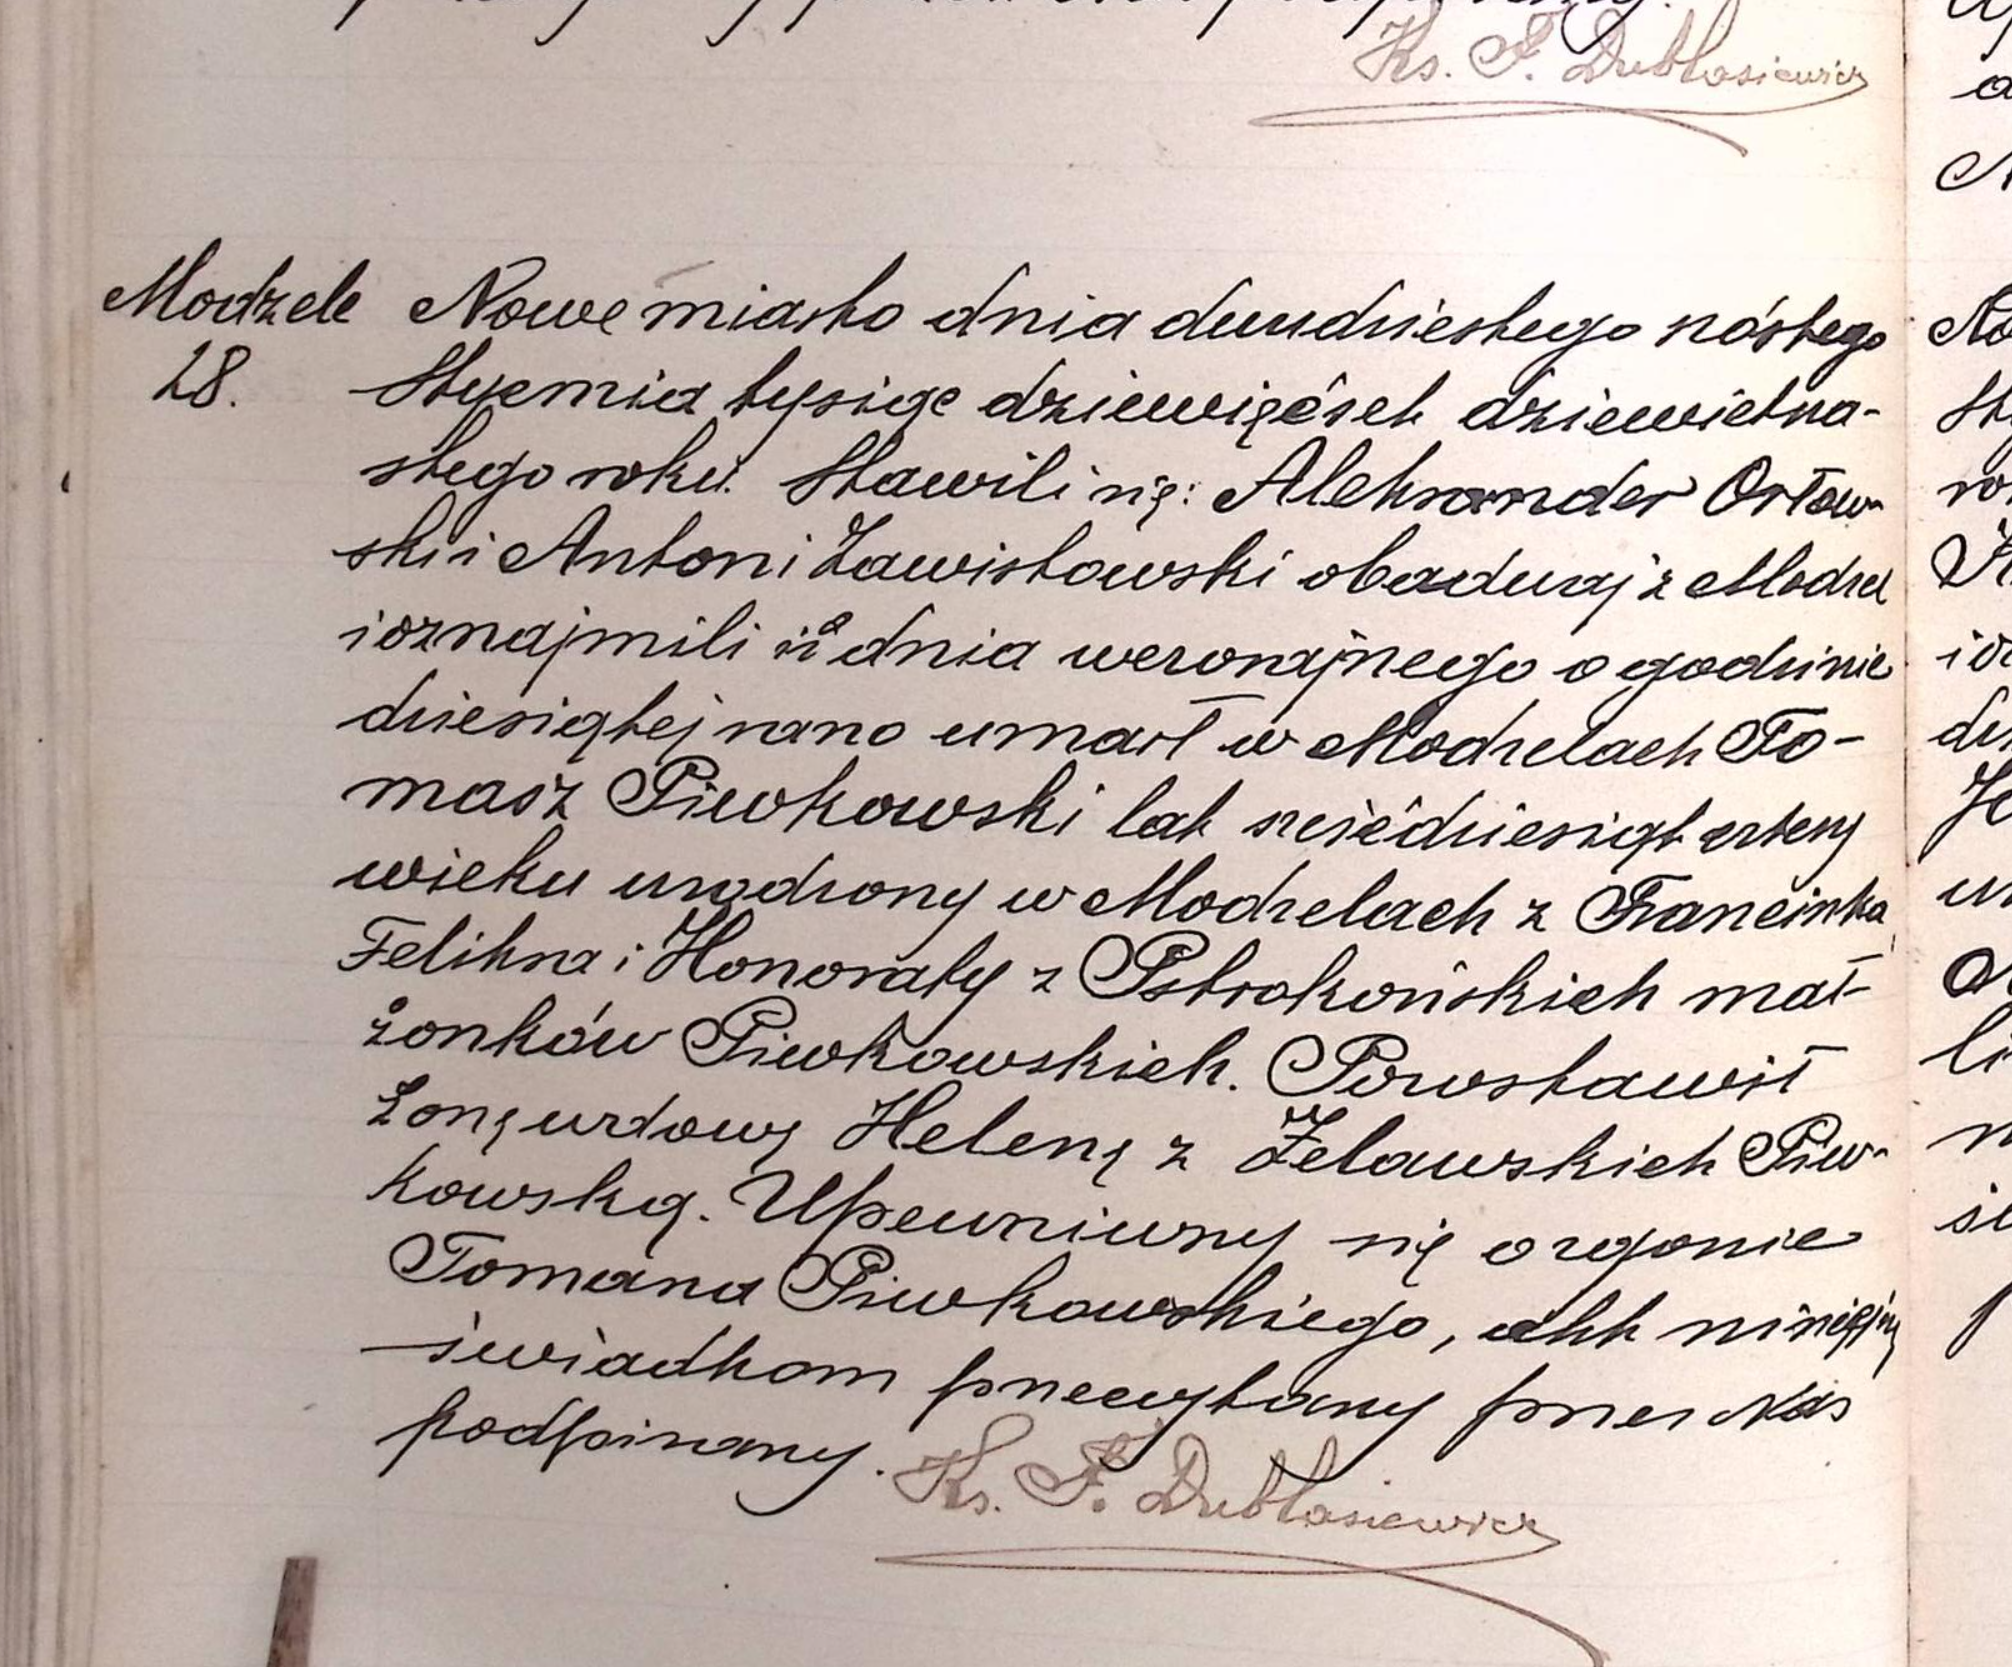 Ks. F. Dubłasiewicz
Modzele
28.
Nowe miasto dnia dwudziestego szóstego
Stycznia tysiąc dziewięćset dziewietna-
stego roku. Stawili się: Aleksander Orłow-
ski i Antoni Zawistowski obadwaj z Modzel
i oznajmili iż dnia wczorajszego o godzinie
dziesiątej rano umarł w Modzelach To-
masz Piwkowski lat sześćdziesiąt cztery
wieku urodzony w Modzelach z Franciszka
Feliksa i Honoraty z Pstrokońskich mał-
żonków Piwkowskich. Pozostawił
żonę wdowę Helenę z Żelawskich Piw-
kowską. Upewniwszy się o zgonie
Tomasza Piwkowskiego, akt niniejszy
świadkom przeczytany przez Nas
podpisany.
Ks. F. Dubłasiewicz